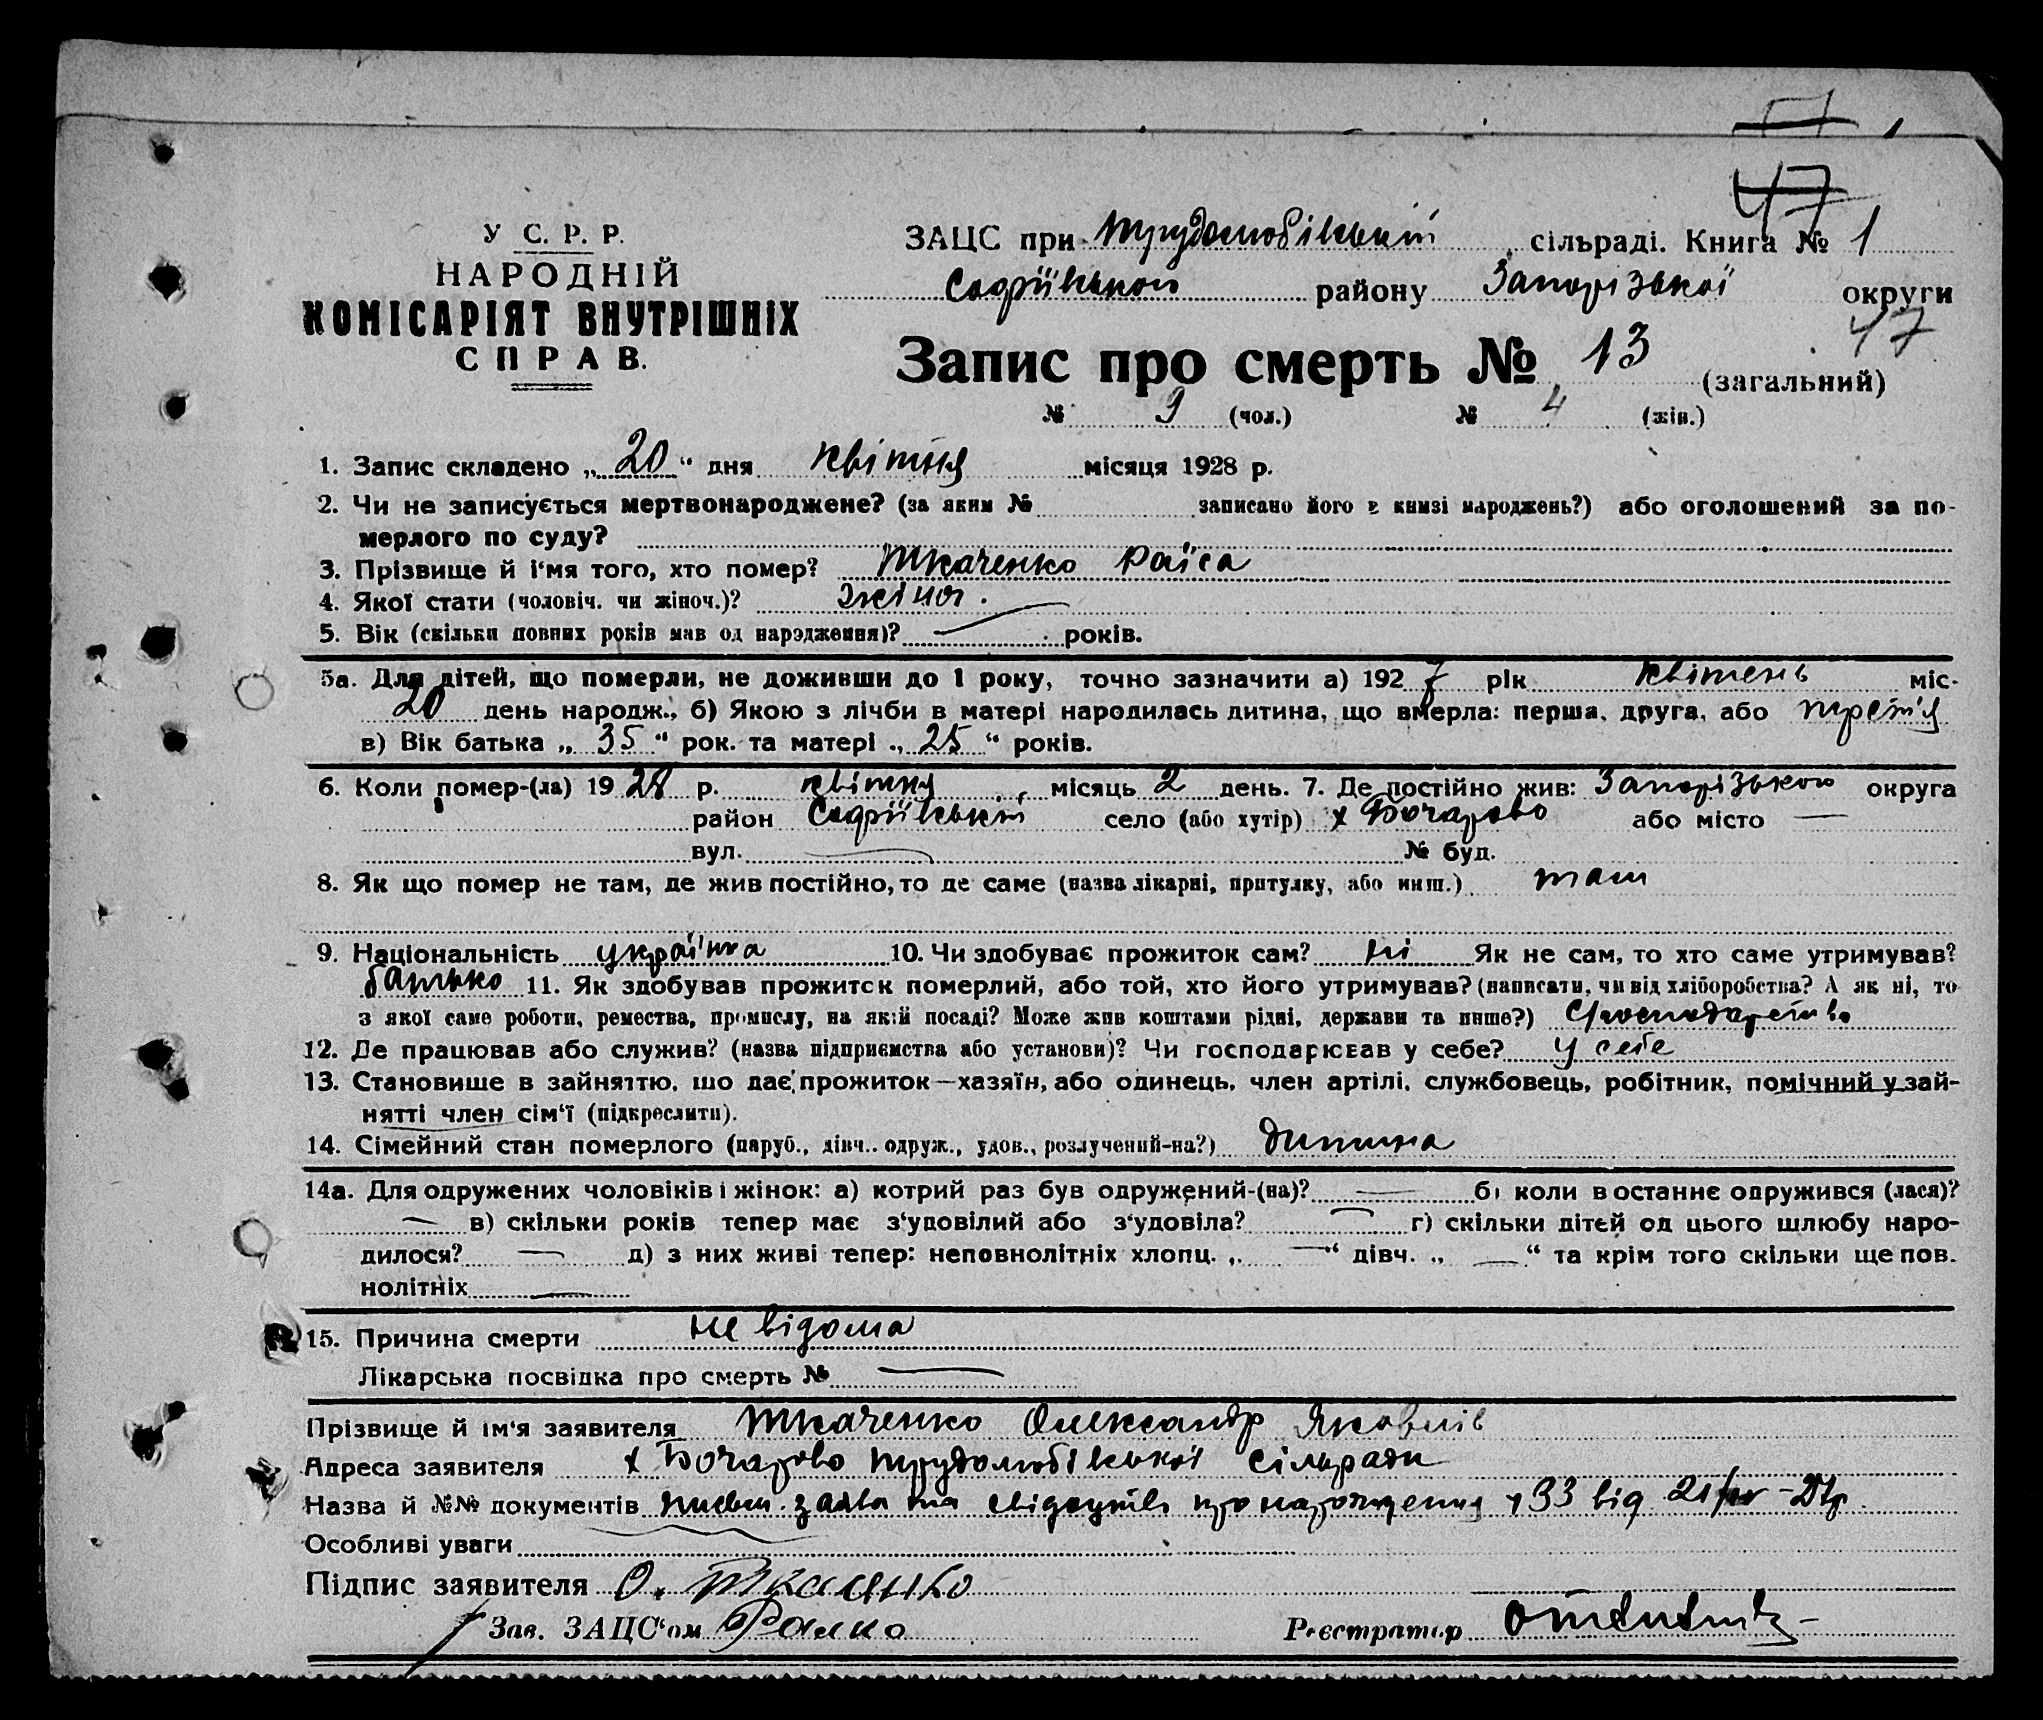 47
У С. Р. Р.
НАРОДНІЙ
КОМІСАРІЯТ ВНУТРІШНІХ
СПРАВ.
ЗАЦС при Трудолюбівській сільраді. Книга № 1
Софіївського району Запорізької округи
47
Запис про смерть № 13 (загальний)
№ 9 (чол.) № 4 (жін.)
1. Запис складено „ 20 “ дня квітня місяця 1928 р.
2. Чи не записується мертвонароджене? (за яким № записано його в книзі народжень?) або оголошений за по-
мерлого по суду?
3. Прізвище й і‘мя того, хто помер? Ткаченко Раїса
4. Якої стати (чоловіч. чи жіноч.)? жіноч.
5. Вік (скільки повних років мав од народження)? — років.
5а. Для дітей, що померли, не доживши до 1 року, точно зазначити а) 192 7 рік квітень міс.
20 день народж., б) Якою з лічби в матері народилась дитина, що вмерла: перша, друга, або третя
в) Вік батька „ 35 “ рок. та матері „ 25 “ років.
6. Коли помер-(ла) 19 28 р. квітня місяць 2 день. 7. Де постійно жив: Запорізької округа
район Софіївській село (або хутір) х Бочарово або місто —
вул. — № буд.
8. Як що помер не там, де жив постійно, то де саме (назва лікарні, притулку, або инш.) там
9. Національність українка 10. Чи здобуває прожиток сам? ні Як не сам, то хто саме утримував?
батько 11. Як здобував прожиток померлий, або той, хто його утримував? (написати, чи від хліборобства? А як ні, то
з якої саме роботи, ремества, промислу, на якій посаді? Може жив коштами рідні, держави та инше?)
12. Де працював або служив? (назва підприємства або установи)? Чи господарював у себе? у себе
13. Становише в зайняттю, що дає прожиток—хазяїн, або одинець, член артілі, службовець, робітник, помічний у зай-
нятті член сім‘ї (підкреслити).
14. Сімейний стан померлого (паруб., дівч., одруж., удов., розлучений-на?) дитина
14а. Для одружених чоловіків і жінок: а) котрий раз був одружений-(на)? — б) коли в останнє одружився (лася)?
— в) скільки років тепер має з‘удовілий або з‘удовіла? — г) скільки дітей од цього шлюбу наро-
дилося? — д) з них живі тепер: неповнолітніх хлопц. „ — “ дівч. „ — “ та крім того скільки ще пов.
нолітніх —
15. Причина смерти не відома
Лікарська посвідка про смерть № —
Прізвище й ім‘я заявителя Ткаченко Олександр Яковлів
Адреса заявителя х Бочарово Трудолюбівської сільради
Назва й №№ документів заява та про народження ч 33 від
Особливі уваги —
Підпис заявителя О. Ткаченко
Зав. ЗАЦС‘ом
Реєстратор